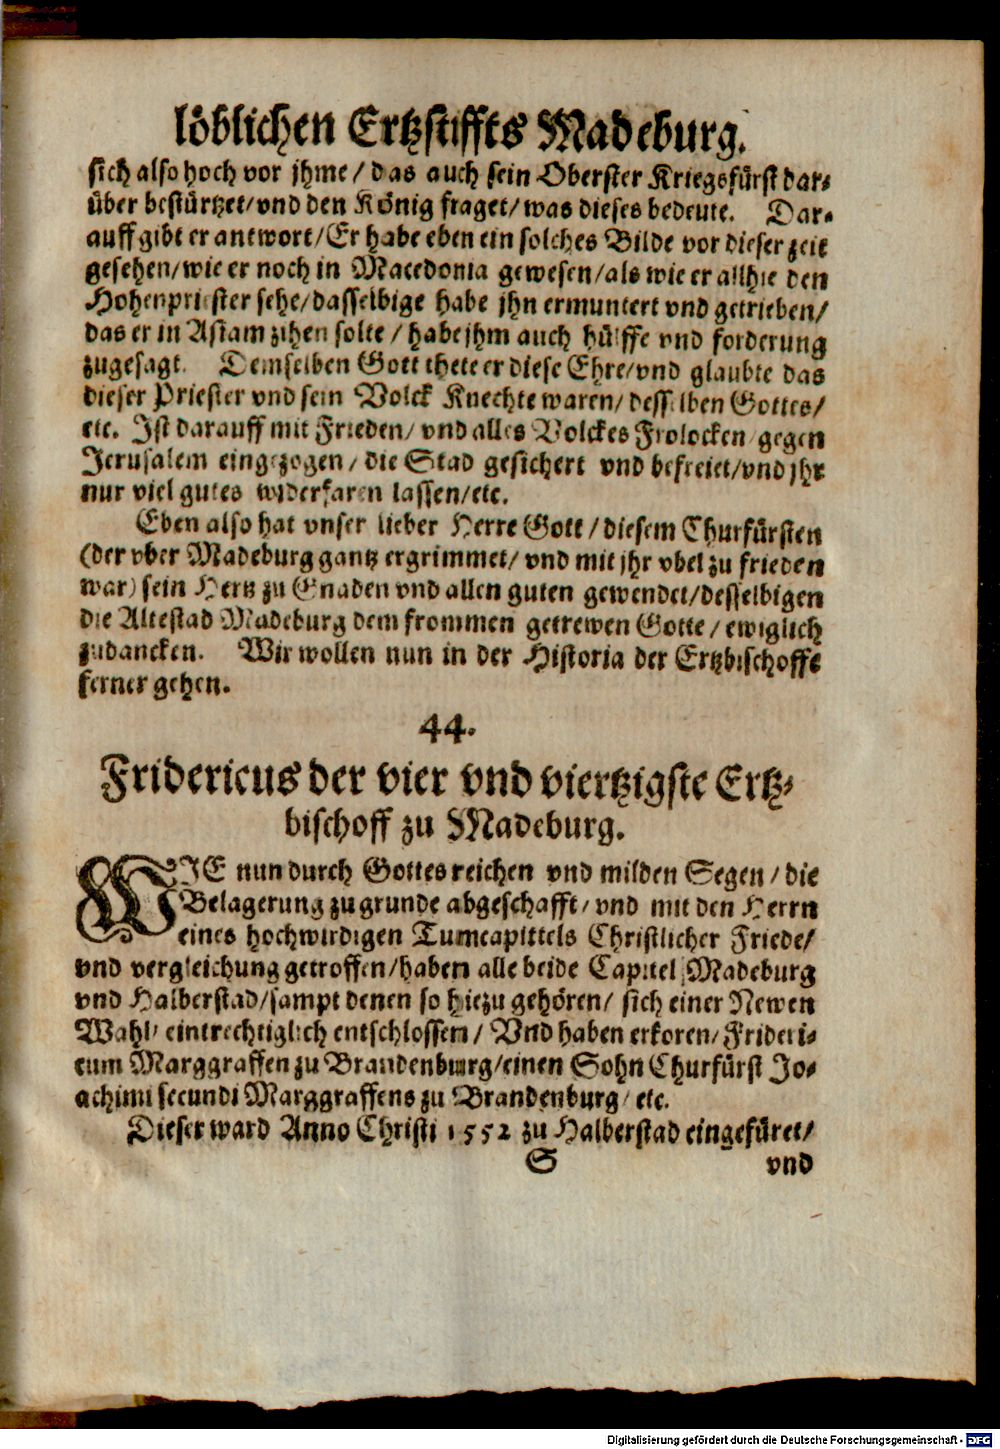 löblichen Ertzstiffts Madeburg.
sich also hoch vor jhme / das auch sein Oberster Kriegsfürst dar-
über bestürtzet / vnd den König fraget / was dieses bedeute. Dar-
auff gibt er antwort / Er habe eben ein solches Bilde vor dieser zeit
gesehen / wie er noch in Macedonia gewesen / als wie er allhie den
Hohenpriester sehe / dasselbige habe jhn ermuntert vnd getrieben /
das er in Asiam zihen solte / habe jhm auch hülffe vnd forderung
zugesagt. Demselben Gott thete er diese Ehre / vnd glaubte das
dieser Priester vnd sein Volck Knechte waren / desselben Gottes /
etc. Ist darauff mit Frieden / vnd alles Volckes Frolocken / gegen
Jerusalem eingezogen / die Stad gesichert vnd befreiet / vnd jhr
nur viel gutes widerfaren lassen / etc.
Eben also hat vnser lieber Herre Gott / diesem Churfürsten
(der vber Madeburg gantz ergrimmet / vnd mit jhr vbel zu frieden
war) sein Hertz zu Gnaden vnd allen guten gewendet / desselbigen
die Altestad Madeburg dem frommen getrewen Gotte / ewiglich
zudancken. Wir wollen nun in der Historia der Ertzbischoffe
ferner gehen.
44.
Fridericus der vier vnd viertzigste Ertz-
bischoff zu Madeburg.
WIE nun durch Gottes reichen vnd milden Segen / die
Belagerung zu grunde abgeschafft / vnd mit den Herrn
eines hochwirdigen Tumcapittels Christlicher Friede /
vnd vergleichung getroffen / haben alle beide Capitel / Madeburg
vnd Halberstad / sampt denen so hiezu gehören / sich einer Newen
Wahl / eintrechtiglich entschlossen / Vnd haben erkoren / Frideri-
cum Marggraffen zu Brandenburg / einen Sohn Churfürst Jo-
achimi secundi Marggraffens zu Brandenburg / etc.
Dieser ward Anno Christi 1552 zu Halberstad eingefüret /
S vnd
Digitalisierung gefördert durch die Deutsche Forschungsgemeinschaft - DFG